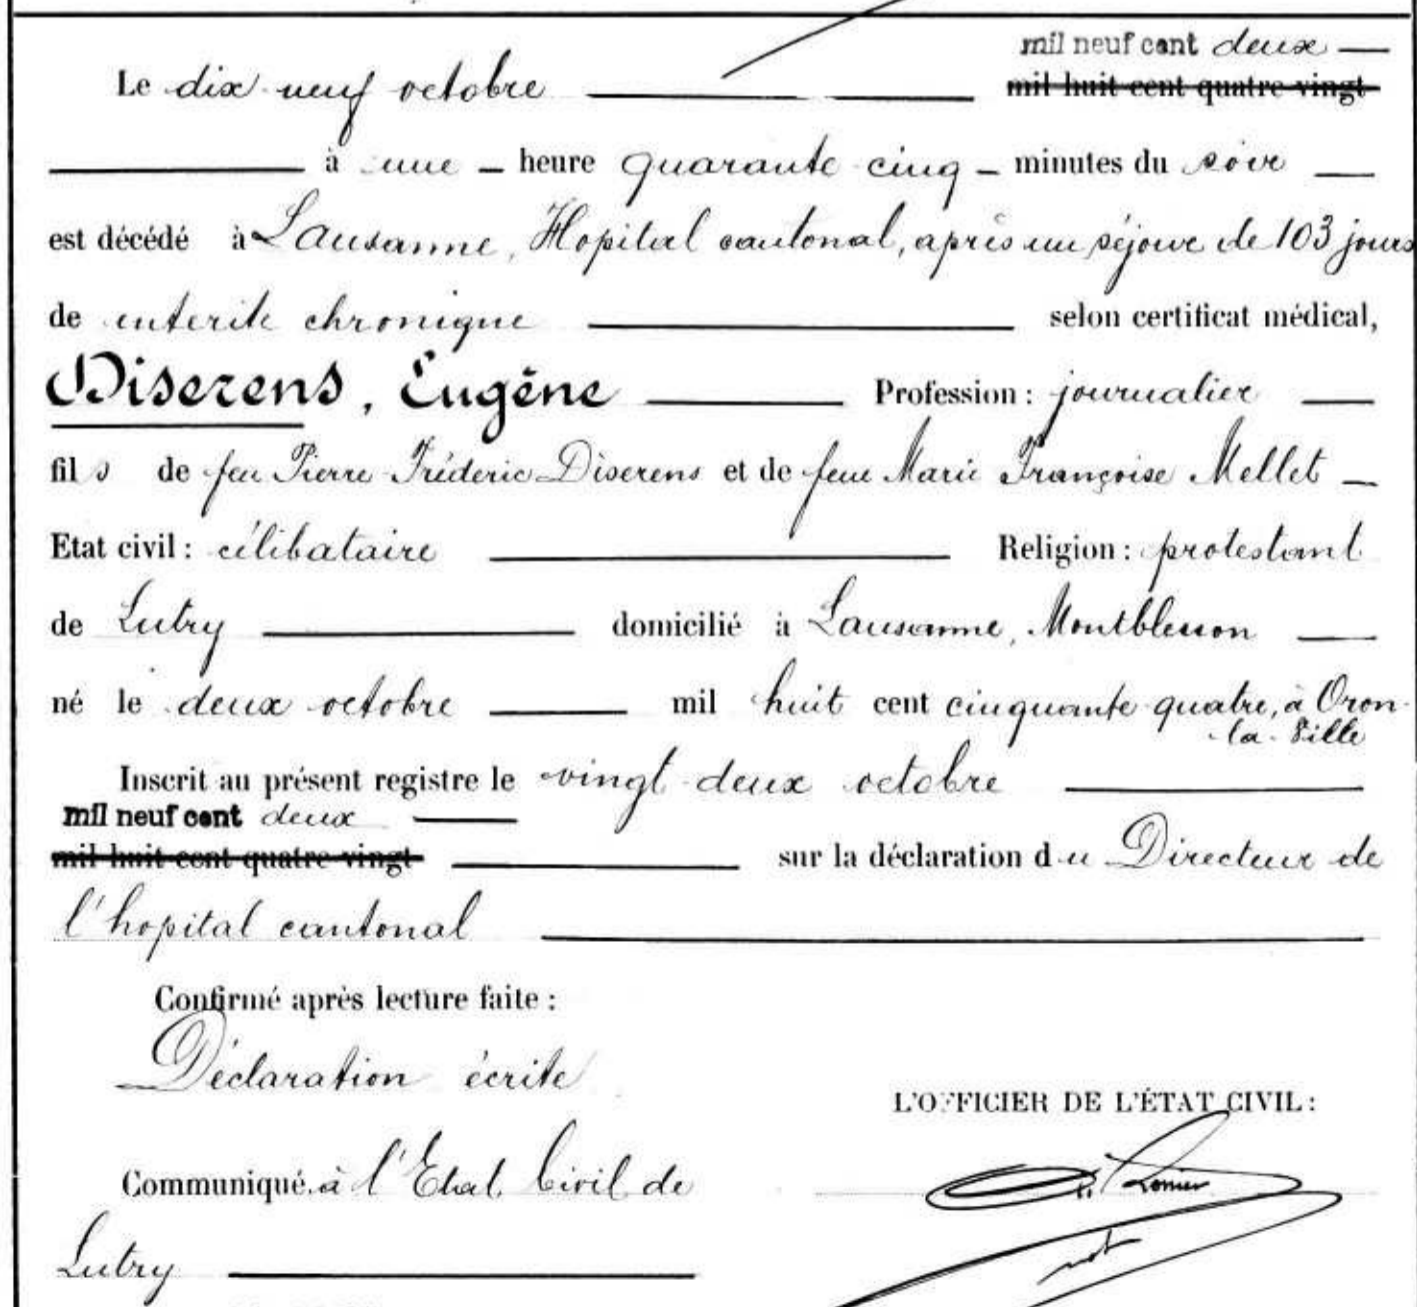 mil neuf cent deux
Le dix neuf octobre mil huit cent quatre vingt
à une heure quarante cinq minutes du soir
est décédé à Lausanne, Hopital cantonal, après un séjour de 103 jours
de enterite chronique selon certificat médical,
Diserens, Eugène Profession : journalier
fils de feu Pierre Fréderic Diserens et de feue Marie Françoise Mellet
Etat civil : célibataire Religion : protestant
de Lutry domicilié à Lausanne, Montblesson
né le deux octobre mil huit cent cinquante quatre, à Oron-
la-Ville
Inscrit au présent registre le vingt deux octobre
mil neuf cent deux
mil huit cent quatre vingt sur la déclaration du Directeur de
l'hopital cantonal
Confirmé après lecture faite :
Déclaration écrite
L'OFFICIER DE L'ÉTAT CIVIL :
Communiqué à l'Etat Civil de
Lutry